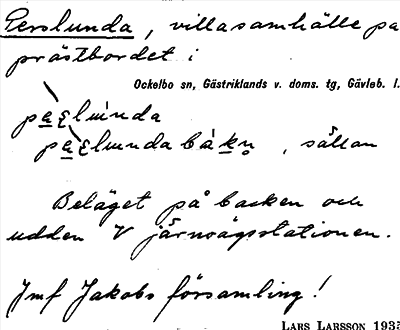 Perslunda, villasamhälle på
prästbordet i
Ockelbo sn, Gästriklands v. doms. tg, Gävleb. l.
sällan
Beläget på backen och
udden V järnvägsstationen.
Jmf Jakobs församling!
LARS LARSSON 1933